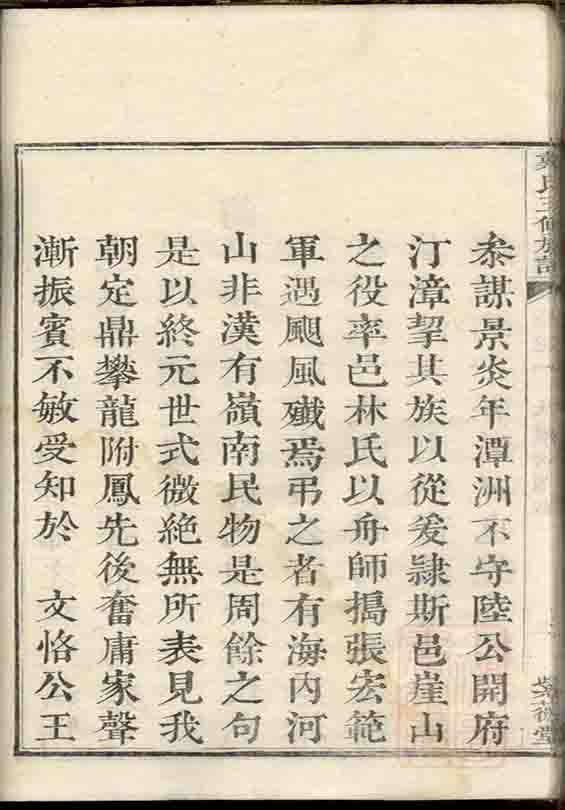 氏三修族譜
紫薇堂
叅謀景炎年潭洲不守陸公開府
汀漳挈其族以從爰隷斯邑崖山
之役率邑林氏以舟師搗張宏範
軍遇颶風殲焉弔之者有海內河
山非漢有嶺南民物是周餘之句
是以終元世式微絶無所表見我
朝定鼎攀龍附鳳先後奮庸家聲
漸振賓不敏受知於 文恪公王